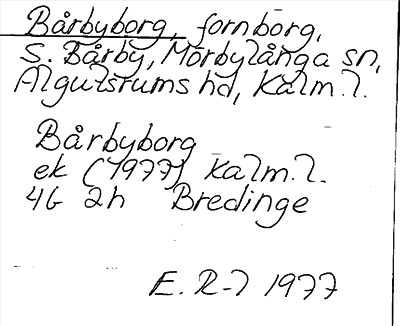 Bårbyborg, fornborg,
S. Bårby, Mörbylånga sn,
Algutsrums hd, Kalm. l.
Bårbyborg
ek (1977) Kalm. l.
4G 2h Bredinge
E. R-l 1977